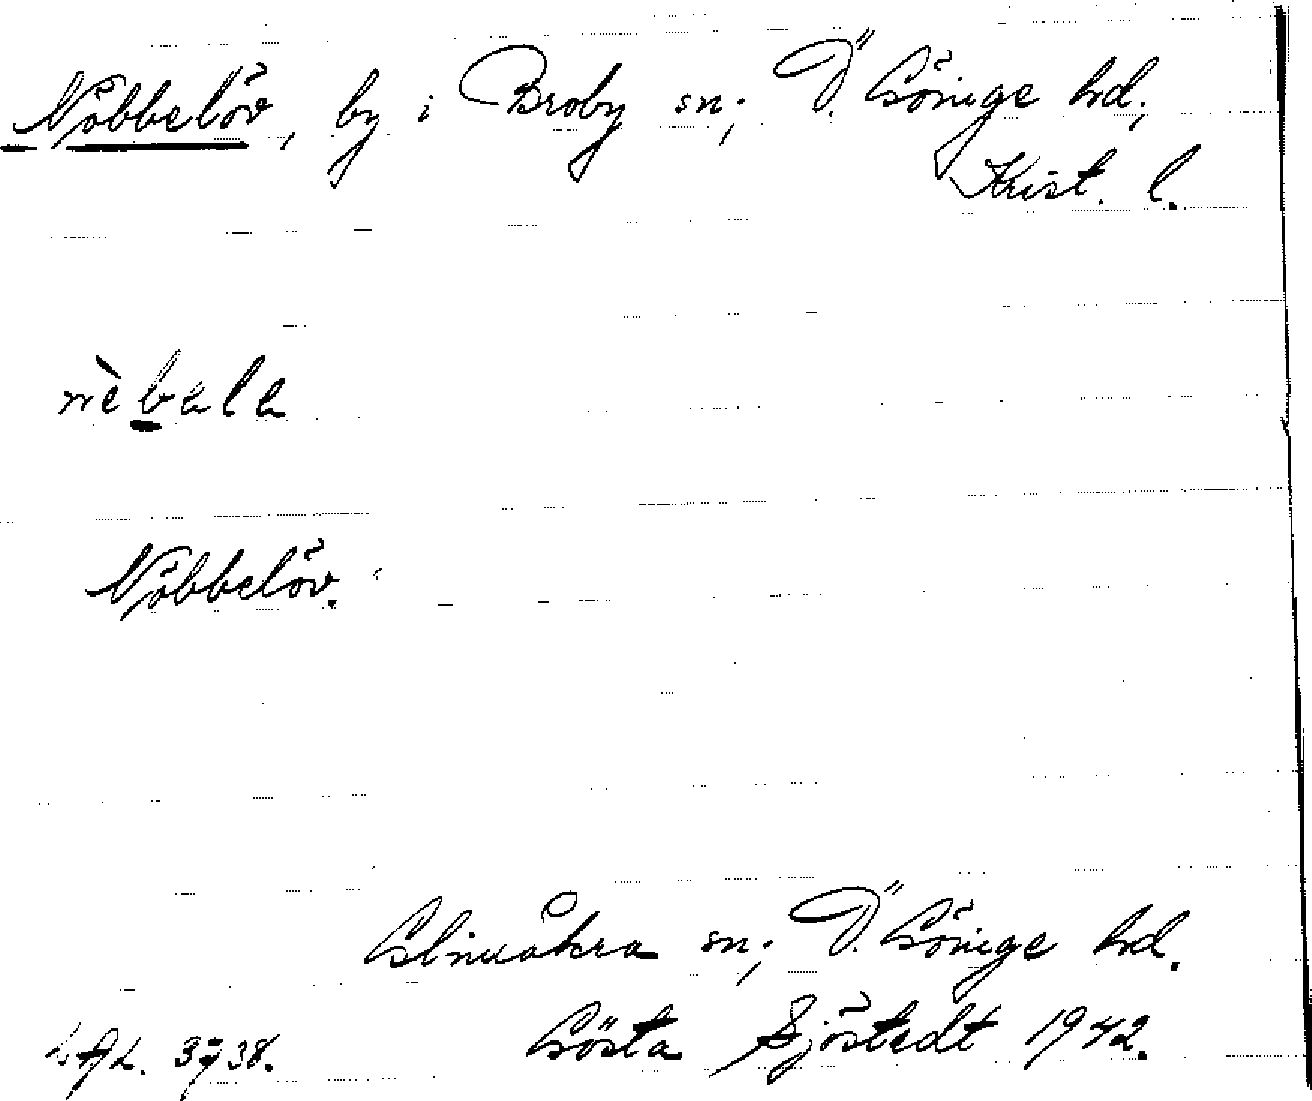 Nöbbelöv, by i Broby sn; Ö. Göinge hd;
Krist. l.
nèbala
Nöbbelöv.
Glimåkra sn; Ö. Göinge hd.
Gösta Sjöstedt 1942.